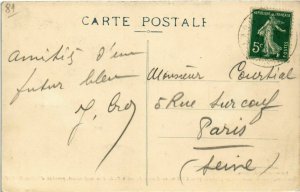 81
CARTE POSTALE
Amitiés d'un
futur bleu
J. Cros
Monsieur Courtial
5 Rue Surcouf
Paris
(Seine)
5c